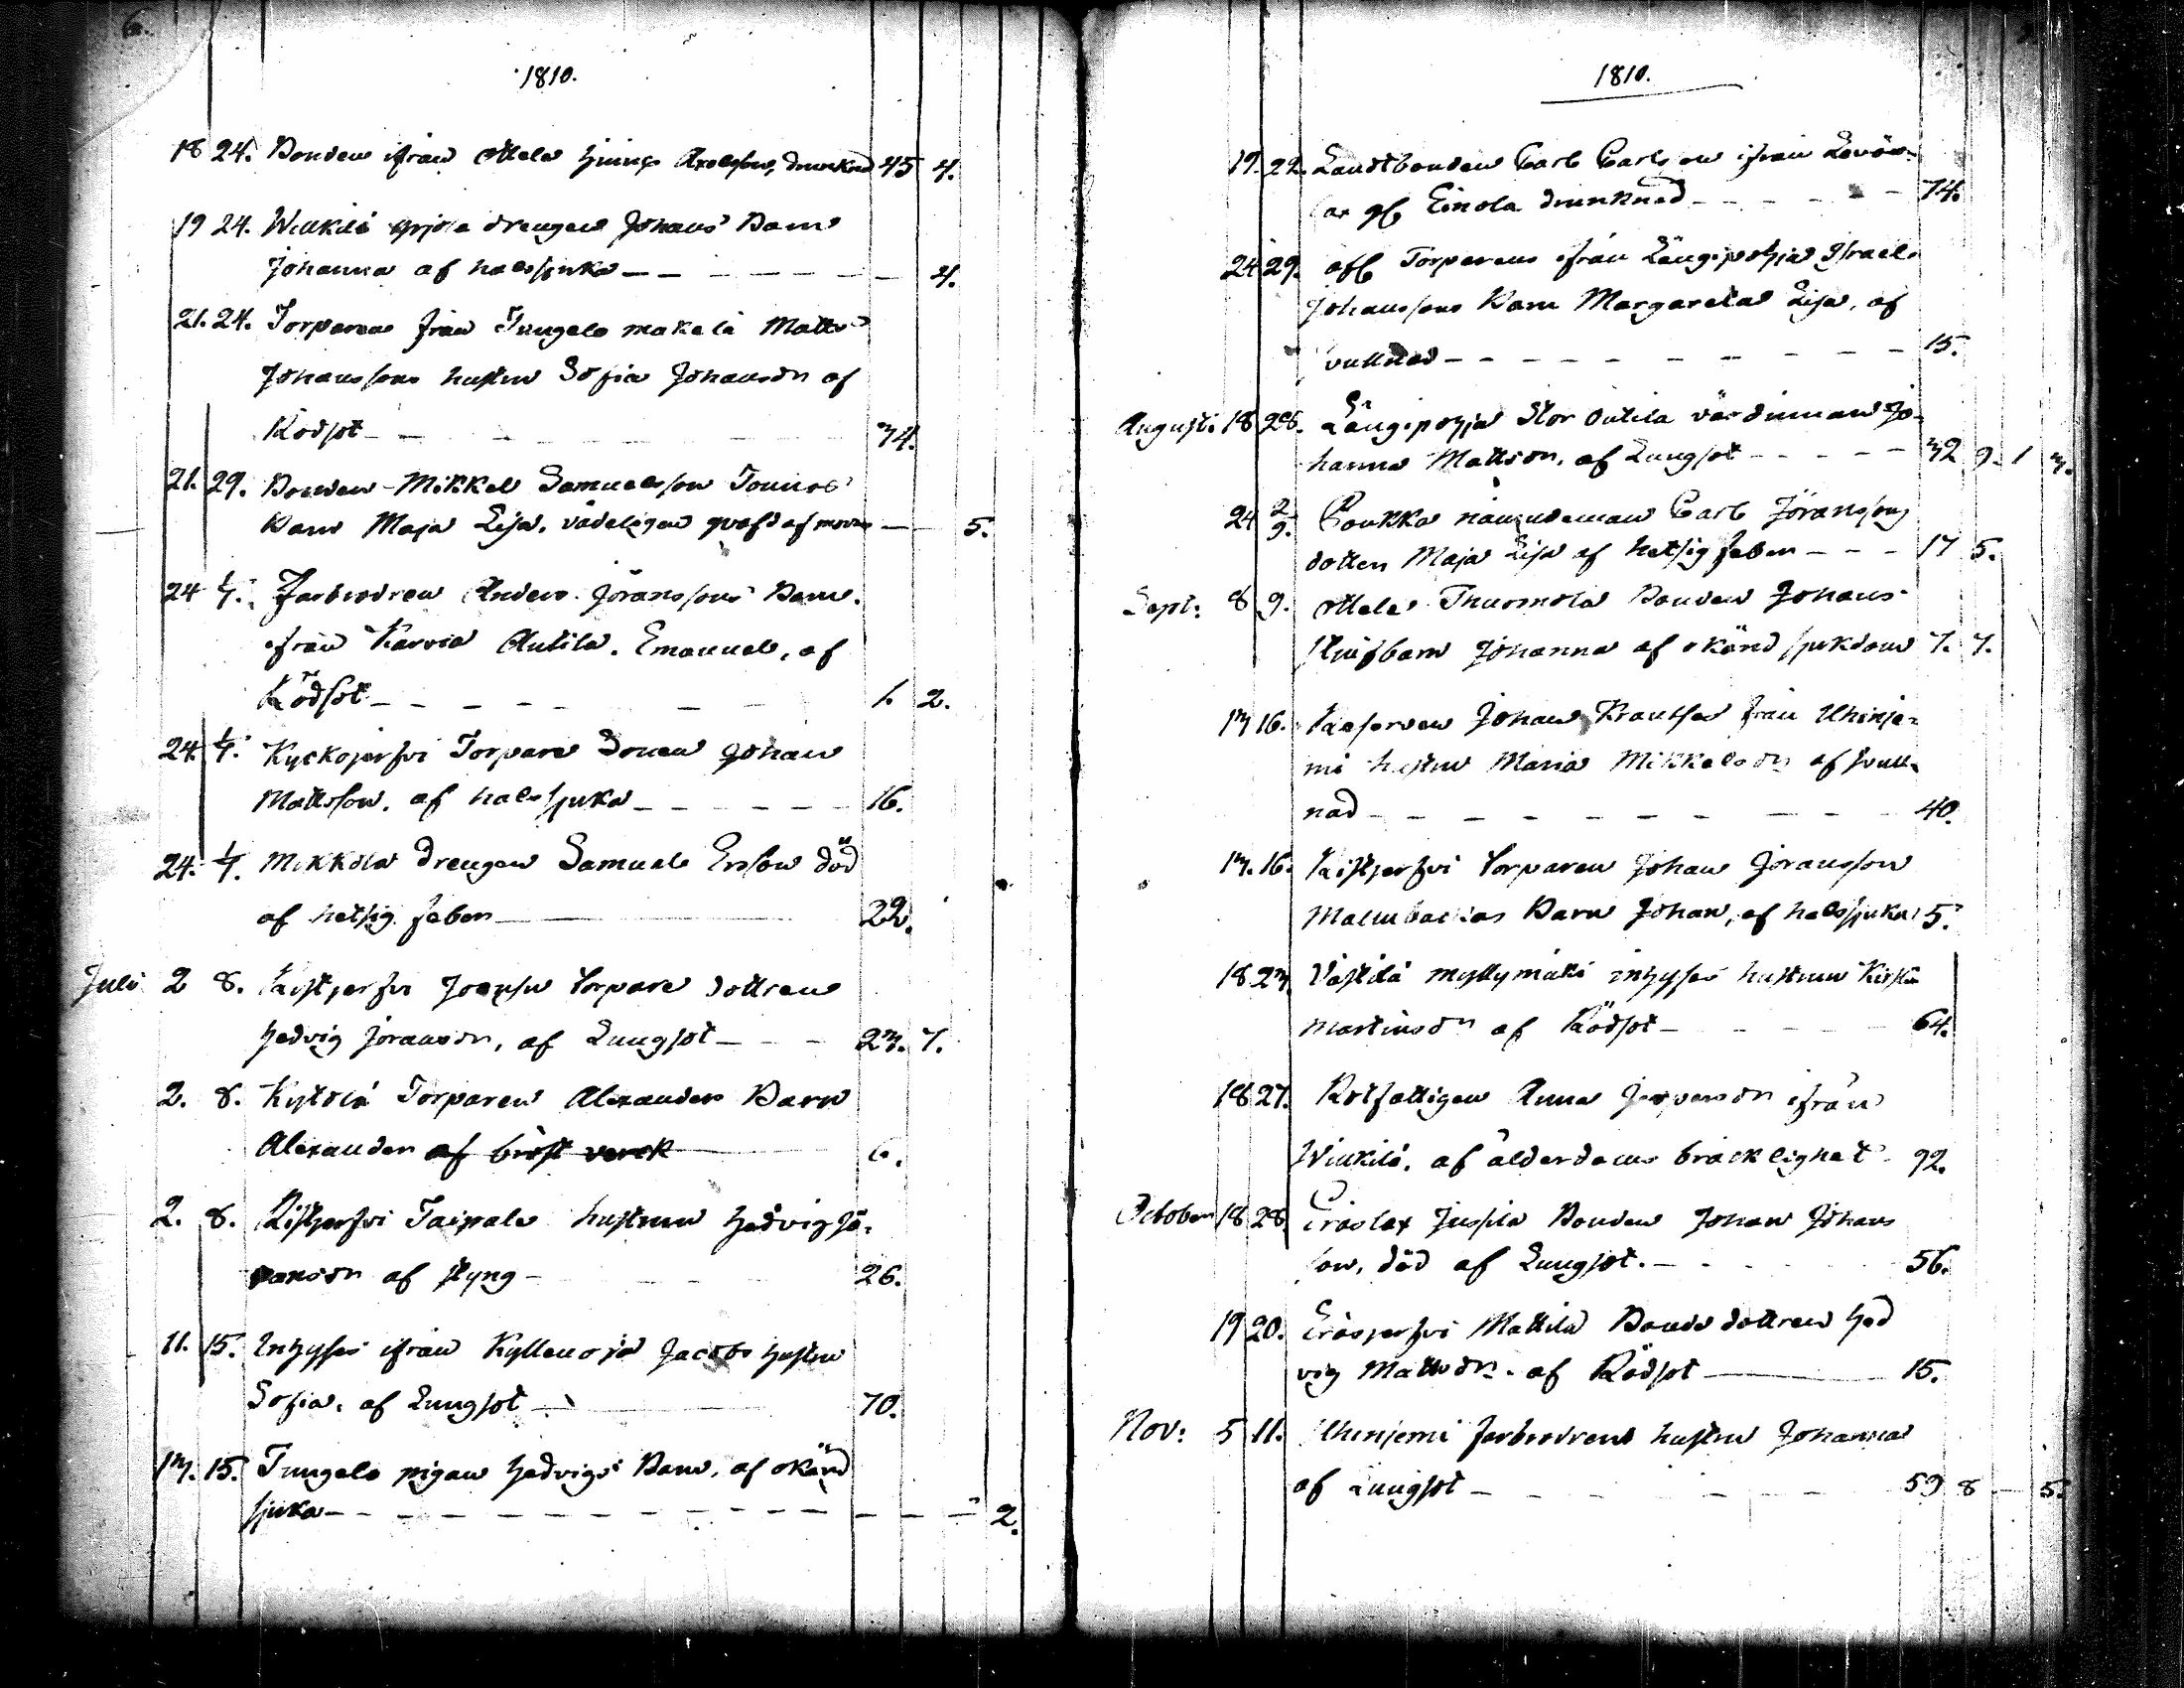 6.
1810.
18 24. Bonden ifrån Ottela Axelsson, drunknad 45 4.
19 24. Winkilä drengens Johans Barn
Johanna af halssjuka — — — 4.
21. 24. Torparens från Tungelo makelä Matts
Johanssons hustru Sofia Johansdr af
Rödsot — — — 34.
21. 29. Bonden Mikkel Samuelsson
Barn Maja Lisa, vådeligen qvafd af modren — 5.
24 1/7. Farbrodren Anders Jöranssons Barn
ifrån Karvia Antila, Emanuel, af
Rödsot — — — 1. 2.
24. 1/7. Kyckojerfvi Torpare Sonen Johan
Mattsson, af halssjuka — — — 16.
24. 1/7. Mikkola Drengen Samuel Ersson död
af hetsig feber — 22.
Juli 2 8. Kistjerfvi Torpare dottren
Hedvig Jöransdr, af Lungsot — — 23. 7.
2. 8. Kytölä Torparen Alexanders Barn
Alexander af bröst verck 6.
2. 8. Ristjerfvi Taipale hustrun Hedvig Jö-
ransdr af styng — 26.
11. 15. Inhyses ifrån Kyllenoja Jacobs hustru
Sofia, af Lungsot — 70.
13. 15. Tungelo pigan Hedvigs Barn, af okänd
sjuka — — — 2.
1810.
19. 22. Landtbonden Carl Carlsson ifrån
Einola drunknad — — — 74.
24 29. afl Torparens ifrån Längipohja Israel
Johanssons Barn Margareta Lisa, af
svullnad — — — 15.
Augusti 18 28. Längipohja Stor Outila värdinnan Jo-
hanna Mattsdr, af Lungsot — — — 32 9. 1 3.
24 2/9. nämndeman Carl Jöranssons
dotter Maja Lisa af hetsig feber — — 17 5.
Sept: 8 9. Ottela Thuomola Bonden Johans
Stjufbarn Johanna af okänd sjukdom 7. 7.
13 16. Johan från Uhinje-
mi hustru Maria Mikkelsdr af svull-
nad — — — 40.
13. 16. Kistjerfvi Torparen Johan Jöransson
Malmbackas Barn Johan, af halssjuka 5.
18 23 Västilä myllymäki inhyses hustrun
Martinsdr af Rödsot — 64.
18 27. Rotfattigen Anna ifrån
Winkilä, af ålderdoms bräcklighet 92.
October 18 28 Jussila Bonden Johan Johans
son, död af Lungsot. — 56.
19 20. Mattila Bonde dottren Hed
vig Mattsdr. af Rödsot — 15.
Nov: 5 11. Uhinjemi farbrodrens hustru Johanna
af Lungsot — — — 59 8 — 5.